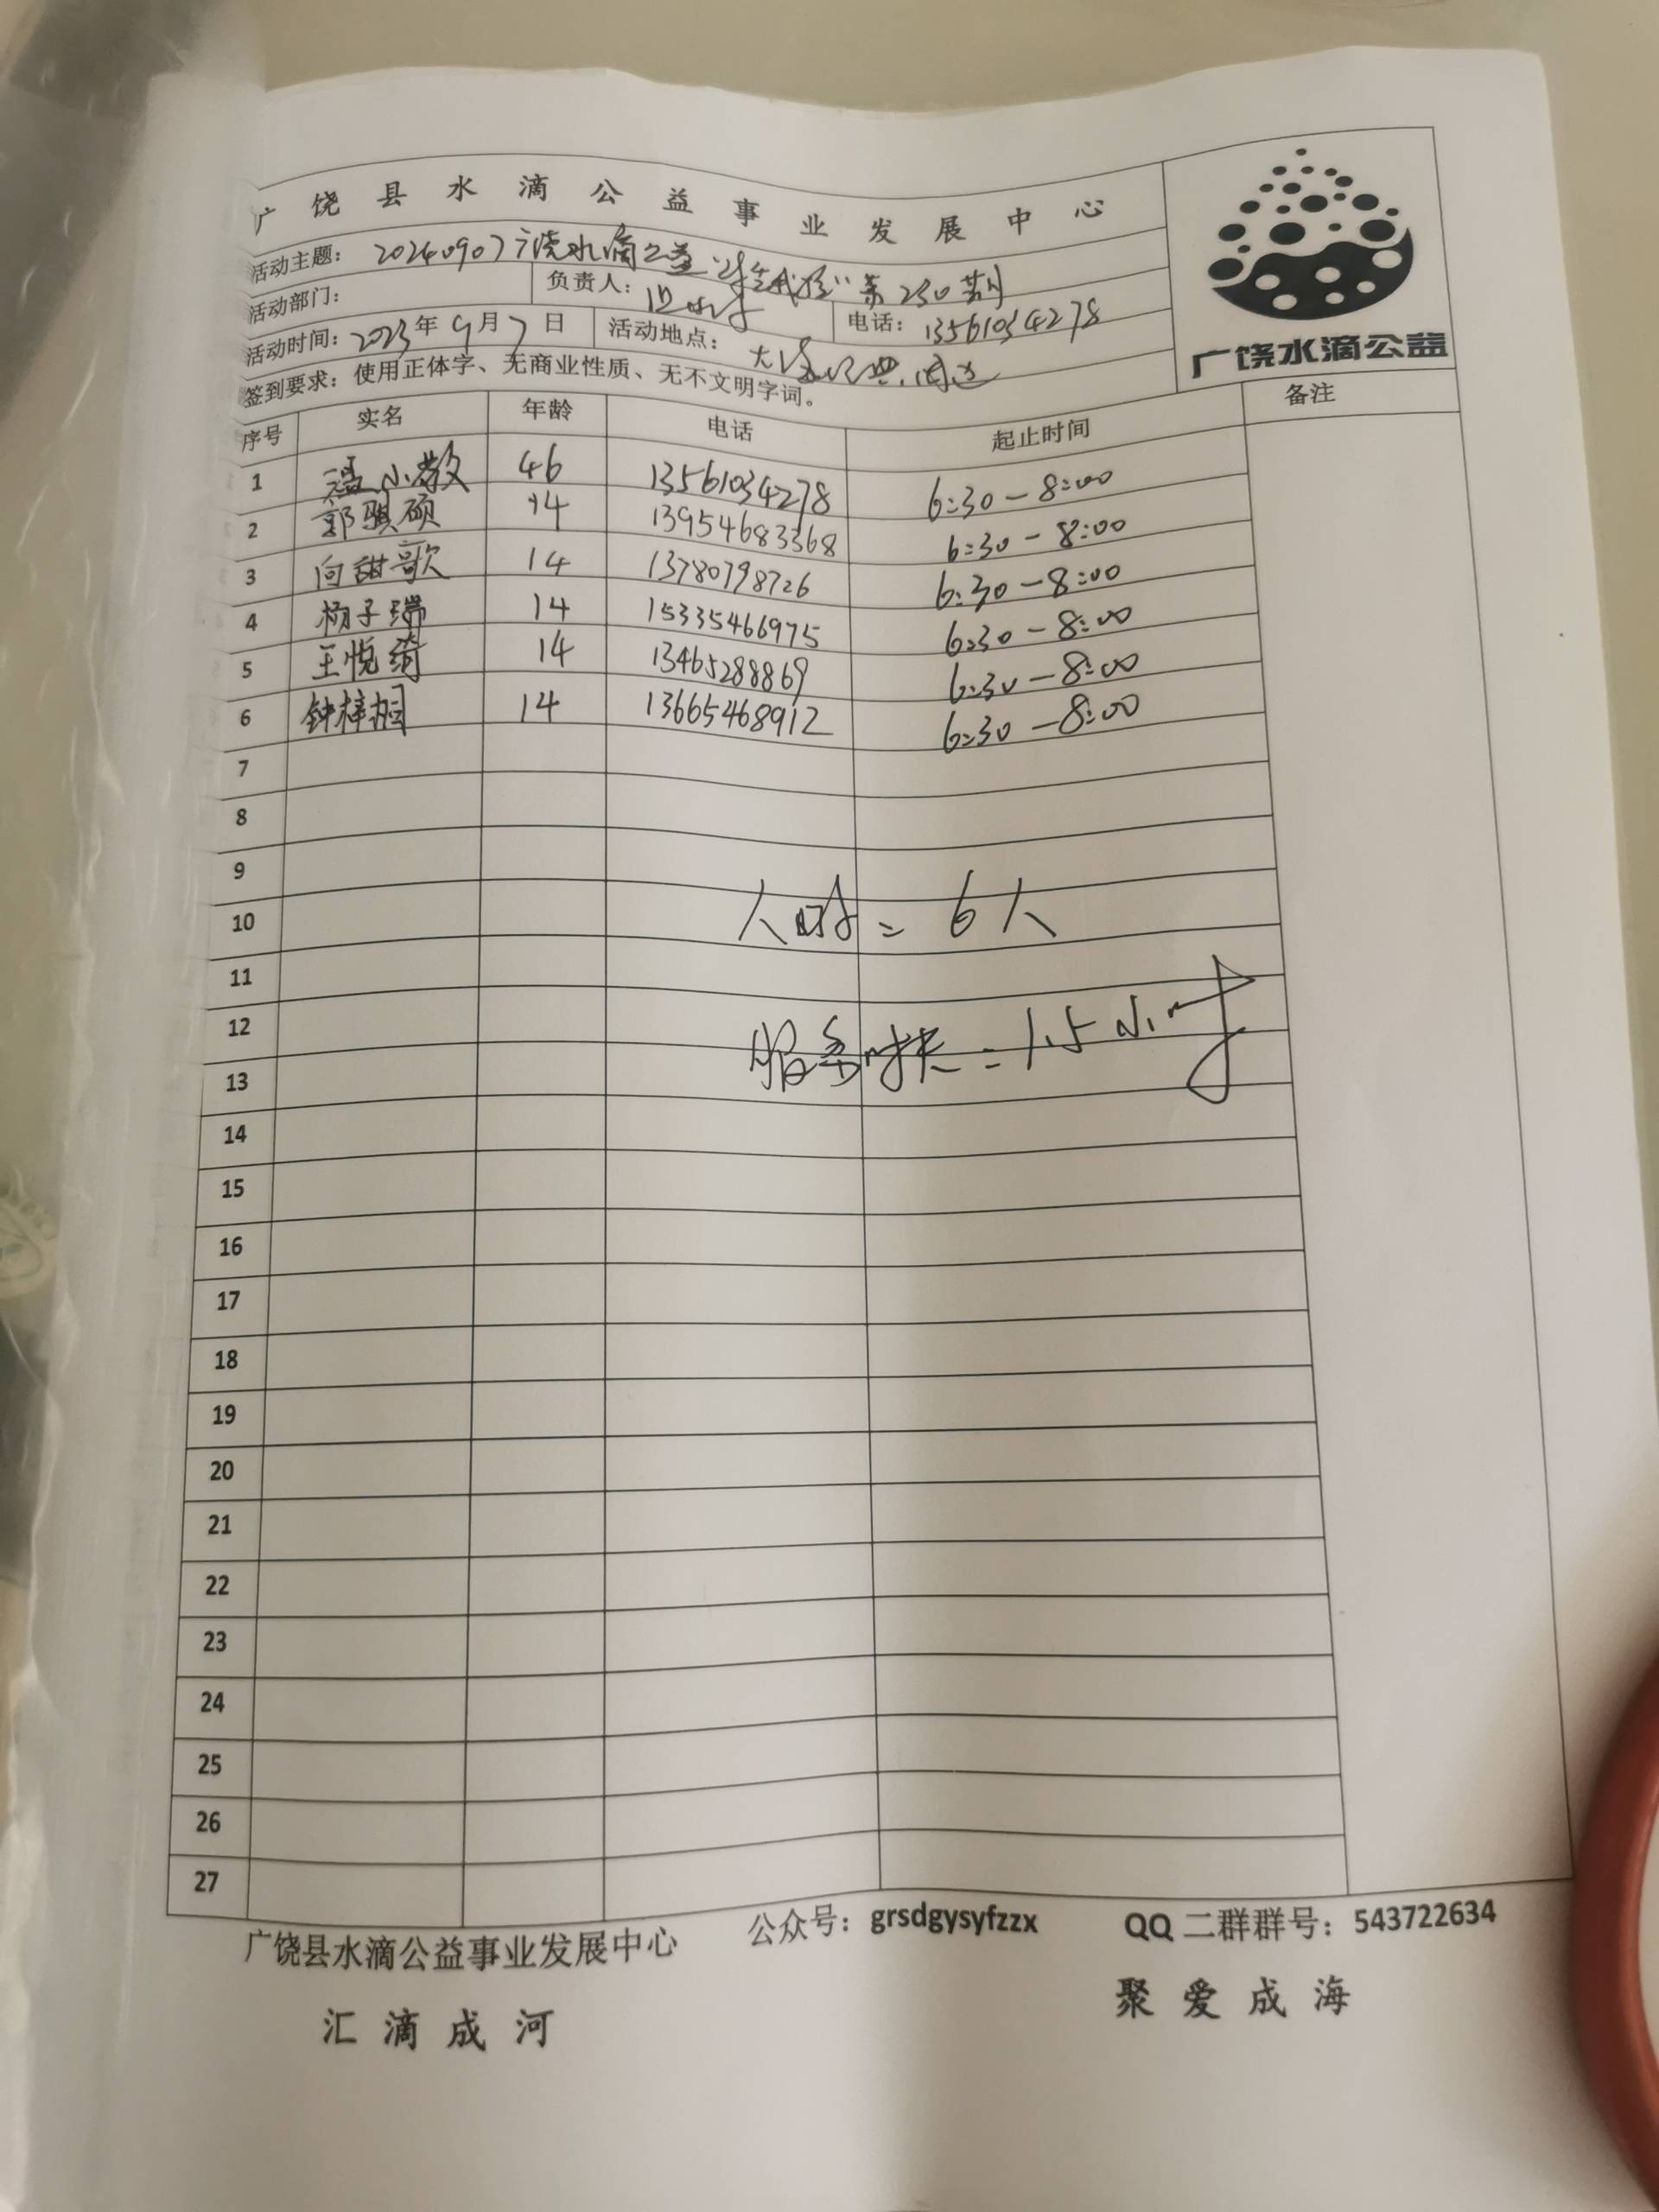 广饶县水滴公益事业发展中心
活动主题：20240907广饶水滴公益“ ”第250期
活动部门： 负责人：
电话：13561034278
活动时间：2023年9月7日 活动地点：大 周边
签到要求：使用正体字、无商业性质、无不文明字词。
广饶水滴公益
序号 实名 年龄 电话 起止时间 备注
1 小教 46 13561034278 6:30-8:00
2 郭骐硕 14 13954683368 6:30-8:00
3 向甜歌 14 13780798726 6:30-8:00
4 杨子瑞 14 15335466975 6:30-8:00
5 王悦绮 14 13465288869 6:30-8:00
6 钟梓桐 14 13665468912 6:30-8:00
7
8
9
10 人时=6人
11
12
服务时长=1.5小时
13
14
15
16
17
18
19
20
21
22
23
24
25
26
27
广饶县水滴公益事业发展中心 公众号：grsdgysyfzzx QQ二群群号：543722634
汇滴成河 聚爱成海